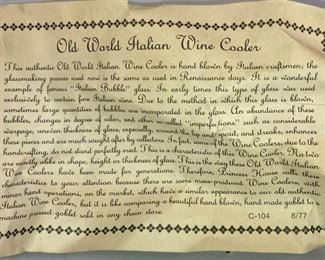 Old World Italian Wine Cooler
This authentic Old World Italian Wine Cooler is hand blown by Italian craftsmen; the
glassmaking process used now is the same as used in Renaissance days. It is a wonderful
example of famous "Italian Bubble" glass. In early times this type of glass was used
exclusively to contain fine Italian wine. Due to the method in which this glass is blown,
sometimes large quantities of bubbles are incorporated in the glass. An abundance of these
bubbles, changes in degree of color, and other so-called "imperfections" such as considerable
warpage, uneven thickness of glass, especially around the lip and spout, and streaks, enhances
these pieces and are much sought after by collectors. In fact, some of the Wine Coolers, due to the
handcrafting, do not stand perfectly erect. This is a characteristic of this Wine Cooler. No two
are exactly alike in shape, height or thickness of glass. This is the way these Old World Italian
Wine Coolers have been made for generations. Therefore, Princess House calls these
characteristics to your attention because there are some mass-produced Wine Coolers, with
minor hand operations, on the market, which have a similar appearance to our old authentic
Italian Wine Cooler, but it is like comparing a beautiful hand blown, hand made goblet to a
machine pressed goblet sold in any chain store.
C-104 8/77